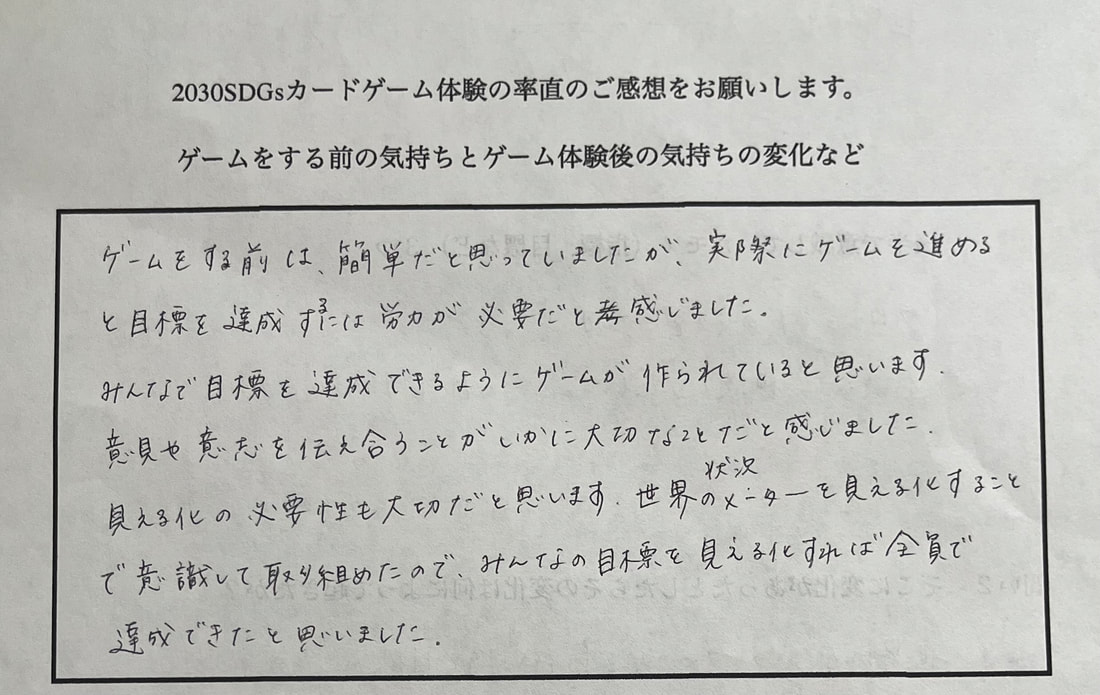 2030SDGsカードゲーム体験の率直のご感想をお願いします。
ゲームをする前の気持ちとゲーム体験後の気持ちの変化など
ゲームをする前は、簡単だと思っていましたが、実際にゲームを進める
と目標を達成するには労力が必要だと感じました。
みんなで目標を達成できるようにゲームが作られていると思います.
意見や意志を伝え合うことがいかに大切なことだと感じました.
見える化の必要性も大切だと思います.世界の状況メーターを見える化すること
で意識して取り組めたので、みんなの目標を見える化すれば全員で
達成できたと思いました.